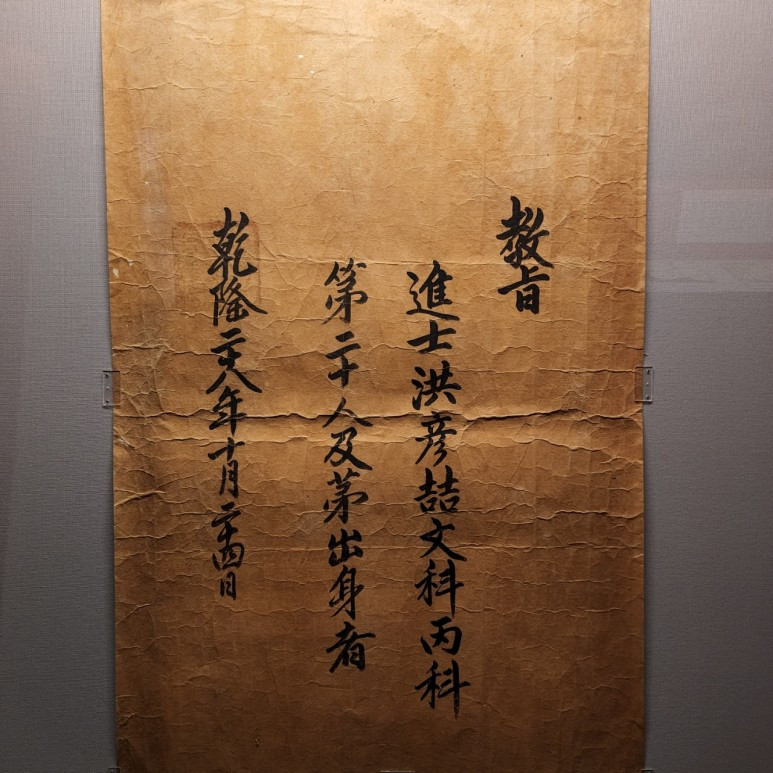 教旨
進士洪彦喆文科丙科
第二十人及第出身者
乾隆二十八年十月二十四日